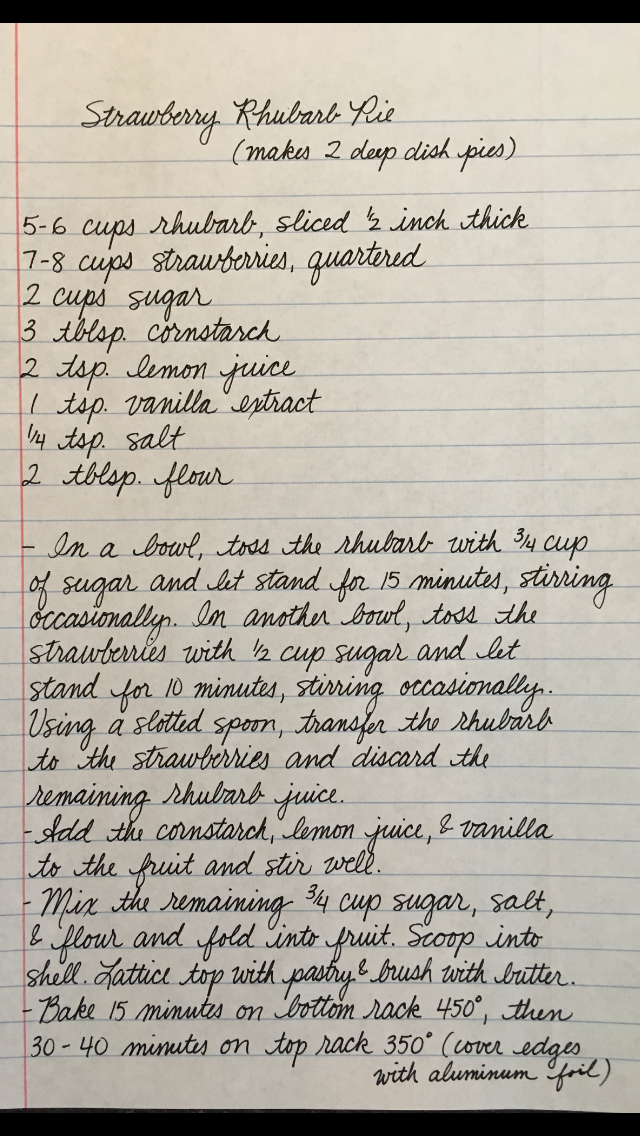 Strawberry Rhubarb Pie
(makes 2 deep dish pies)
5-6 cups rhubarb, sliced ½ inch thick
7-8 cups strawberries, quartered
2 cups sugar
3 tblsp. cornstarch
2 tsp. lemon juice
1 tsp. vanilla extract
¼ tsp. salt
2 tblsp. flour
- In a bowl, toss the rhubarb with ¾ cup
of sugar and let stand for 15 minutes, stirring
occasionally. In another bowl, toss the
strawberries with ½ cup sugar and let
stand for 10 minutes, stirring occasionally.
Using a slotted spoon, transfer the rhubarb
to the strawberries and discard the
remaining rhubarb juice.
- Add the cornstarch, lemon juice, & vanilla
to the fruit and stir well.
- Mix the remaining ¾ cup sugar, salt,
& flour and fold into fruit. Scoop into
shell. Lattice top with pastry & brush with butter.
- Bake 15 minutes on bottom rack 450°, then
30-40 minutes on top rack 350° (cover edges
with aluminum foil)